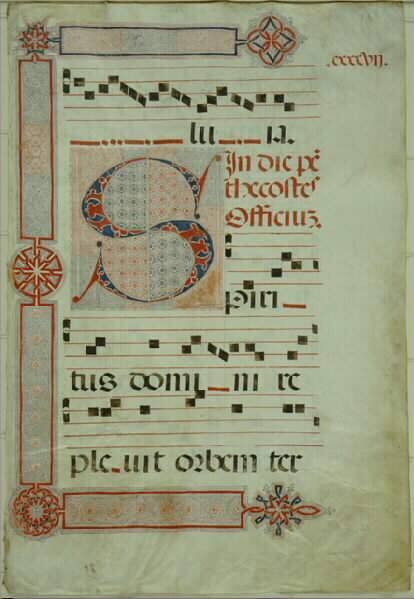 lu ia.
In die pē
thecostes
Officiuʒ.
Spiri
tus domi ni re
ple uit orbem ter